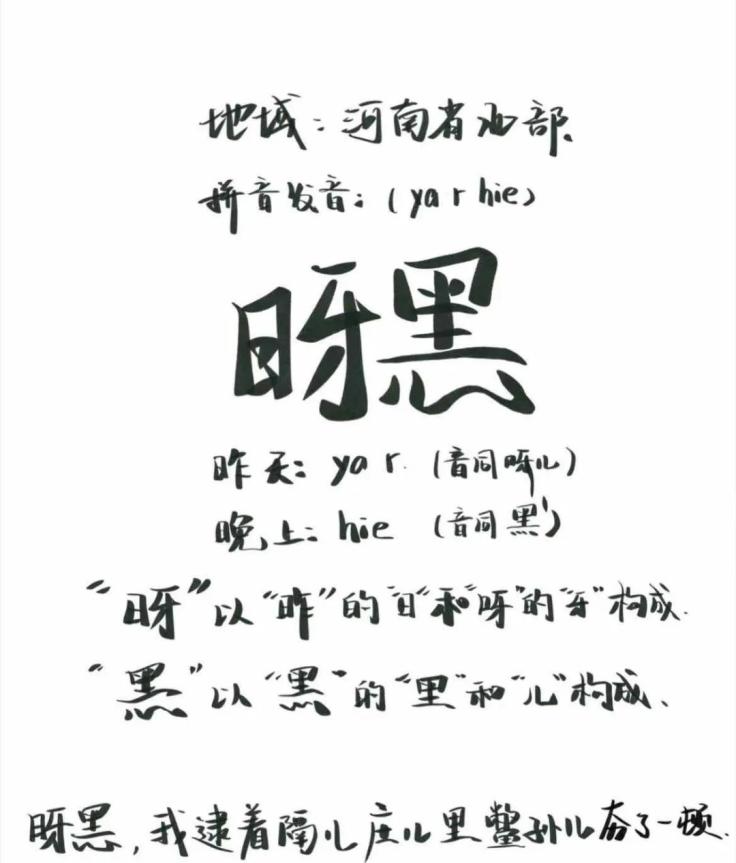 地域：河南省北部、
拼音发音：（yar hie）
㕦黑
昨天：yar.（音同呀儿）
晚上：hie（音同黑）
“㕦”以“昨”的“日”和“呀”的“牙”构成.
“黑”以“黑”的“里”和“儿”构成、
㕦黑，我逮着隔儿庄儿里鳖孙儿夯了一顿.